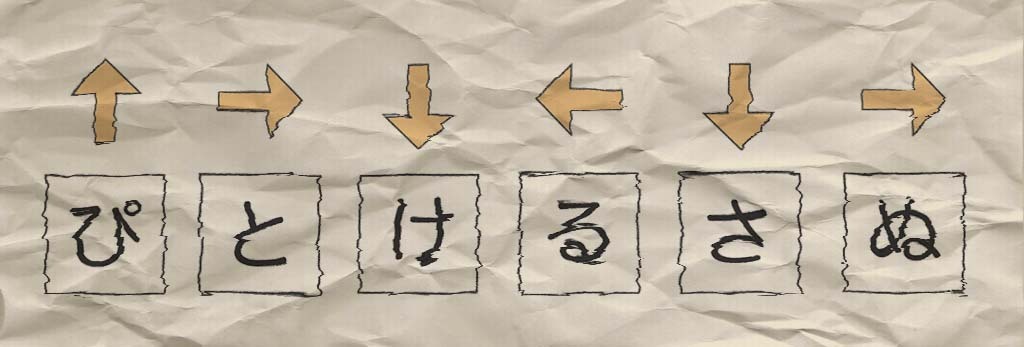 ぴとけるさぬ